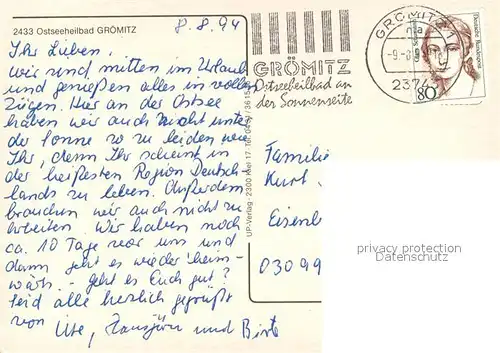 2433 Ostseeheilbad GRÖMITZ
8.8.94
Ihr Lieben.
Wir sind mitten im Urlaub
und genießen alles in vollen
Zügen. Hier an der Ostsee
haben wir auch nicht unter
der Sonne so zu leiden wie
Ihr, denn Ihr scheint in
der heißesten Region Deutsch-
lands zu leben. Außerdem
brauchen wir auch nicht zu
arbeiten. Wir haben noch
ca. 10 Tage vor uns und
dann geht es wieder heim-
wärts. - geht es Euch gut?
Seid alle herzlich gegrüßt
von Ute, Hansjörn und Birte
UP-Verlag · 2300 Kiel 17 · Tel. 04 3615
GRÖMITZ
Ostseeheilbad an
der Sonnenseite
GRÖMITZ 1
ma
-9.-8.
2374
Deutsche Bundespost
80
Familie
Kurt
Eisenb
03099
privacy protection
Datenschutz